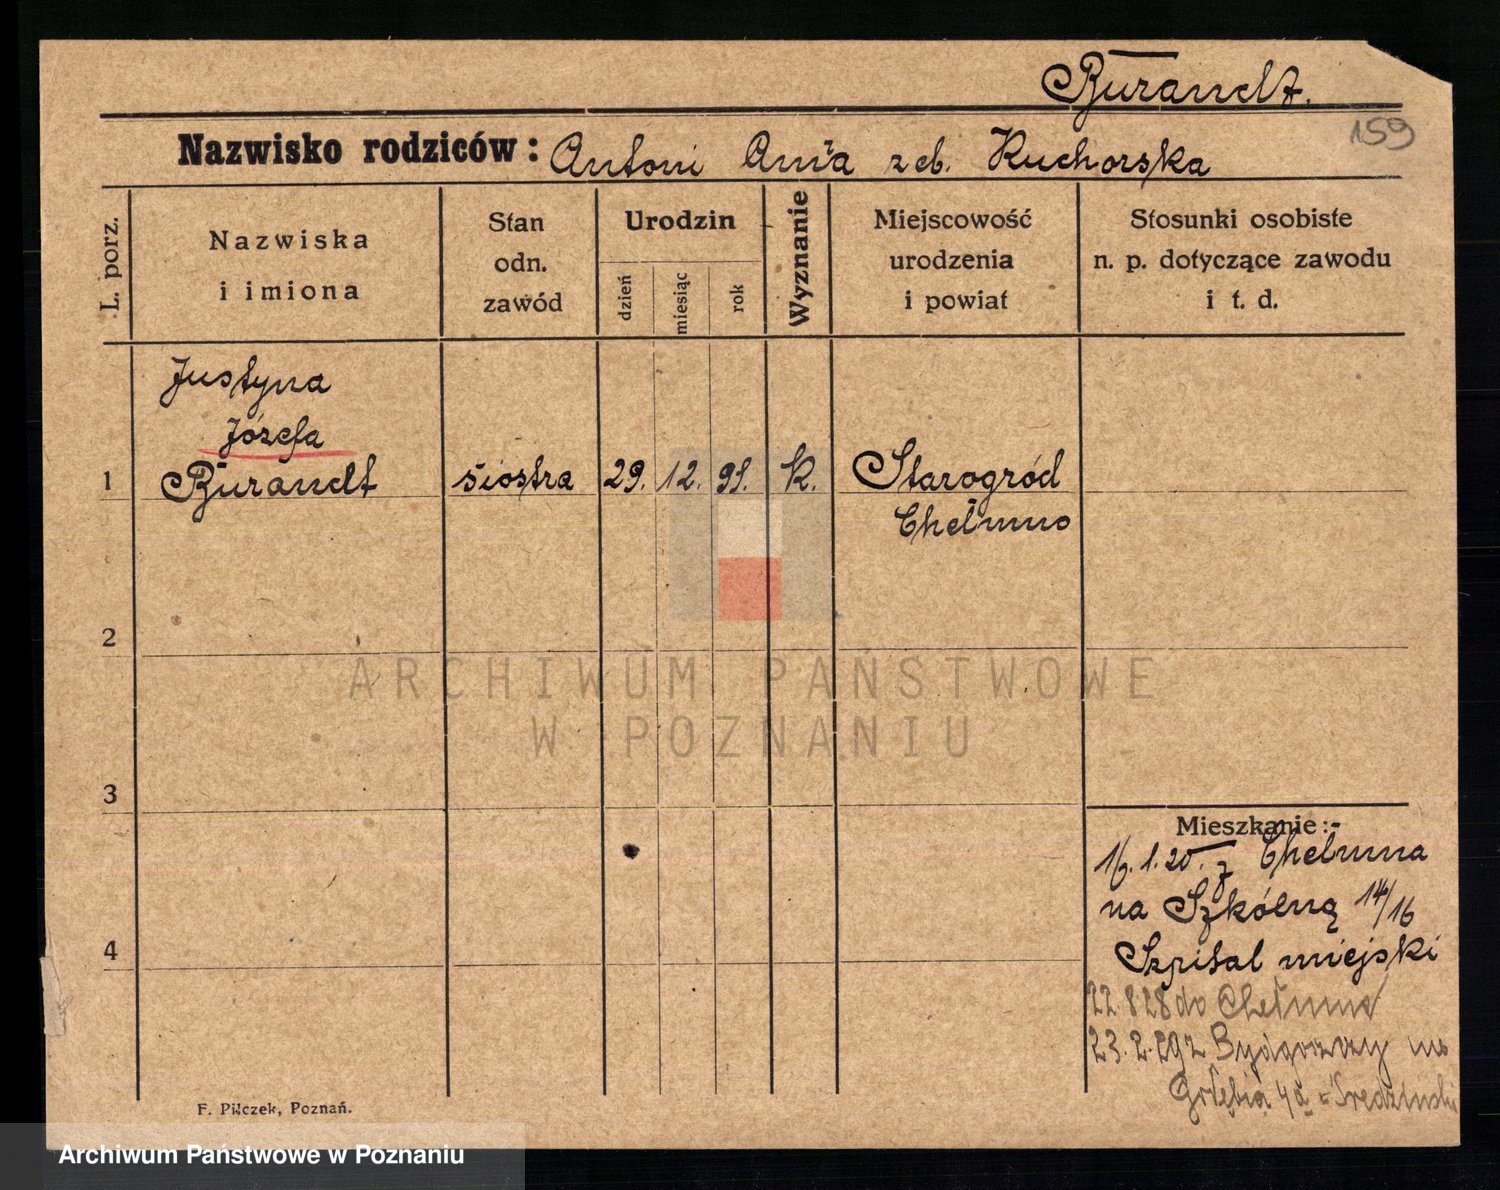 Burandt.
159
Nazwisko rodziców: Antoni Ania z eb. Kuchorska
L. porz.
Nazwiska
i imiona
Stan
odn.
zawód
Urodzin
dzień
miesiąc
rok
Wyznanie
Miejscowość
urodzenia
i powiat
Stosunki osobiste
n. p. dotyczące zawodu
i t. d.
Justyna
Józefa
1 Burandt siostra 29. 12. 91. K. Starogród
Chełmno
2
ARCHIWUM PAŃSTWOWE
W POZNANIU
3
Mieszkanie:-
16.1.20. z Chełmna
na Szkólną 14/16
4
Szpital miejski
22.8.28 do Chełmna
23.2.29 z Bydgoszczy na
4a
F. Pilczek, Poznań.
Archiwum Państwowe w Poznaniu